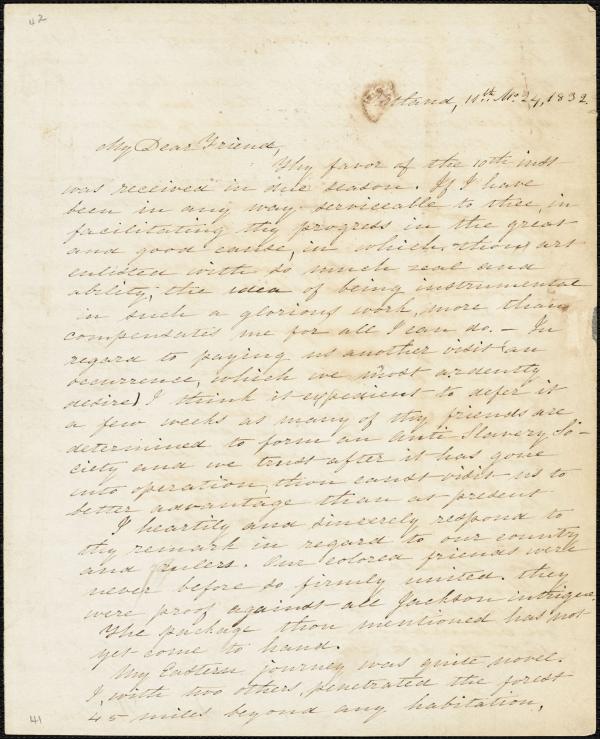 42
Portland, 11th. Mo. 24, 1832.
My Dear Friend,
Thy favor of the 10th inst
was received in due season. If I have
been in any way serviceable to thee, in
facilitating thy progress in the great
and good cause, in which thou art
enlisted with so much zeal and
ability; the idea of being instrumental
in such a glorious work, more than
compensates me for all I can do. – In
regard to paying us another visit (an
occurrence, which we most ardently
desire) I think it expedient to defer it
a few weeks as many of thy friends are
determined to form an Anti Slavery So-
ciety and we trust after it has gone
into operation, thou canst visit us to
better advantage than at present
I heartily and sincerely respond to
thy remark in regard to our country
and rulers. Our colored friends were
never before so firmly united. they
were proof against all Jackson intrigue.
The package thou mentioned has not
yet come to hand.
My Eastern journey was quite novel.
I, with two others, penetrated the forest
45 miles beyond any habitation,
41